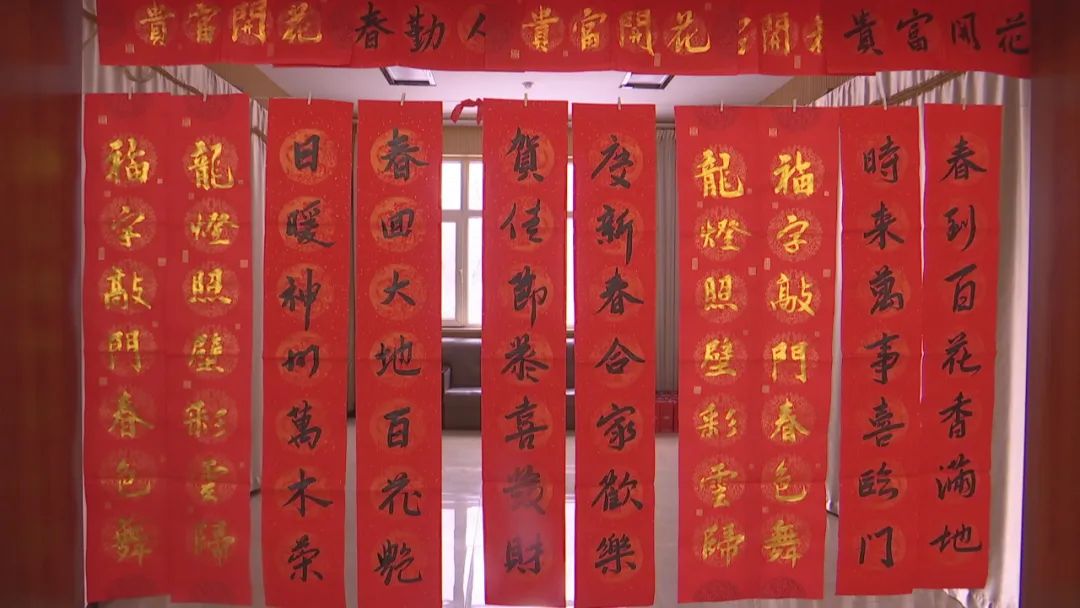 花開富貴
花開富貴
人勤春
花開富貴
春到百花香滿地
時来萬事喜臨門
福字敲門春色舞
龍燈照壁彩雲歸
度新春合家歡樂
賀佳節恭喜發財
春回大地百花艷
日暖神州萬木榮
龍燈照壁彩雲歸
福字敲門春色舞